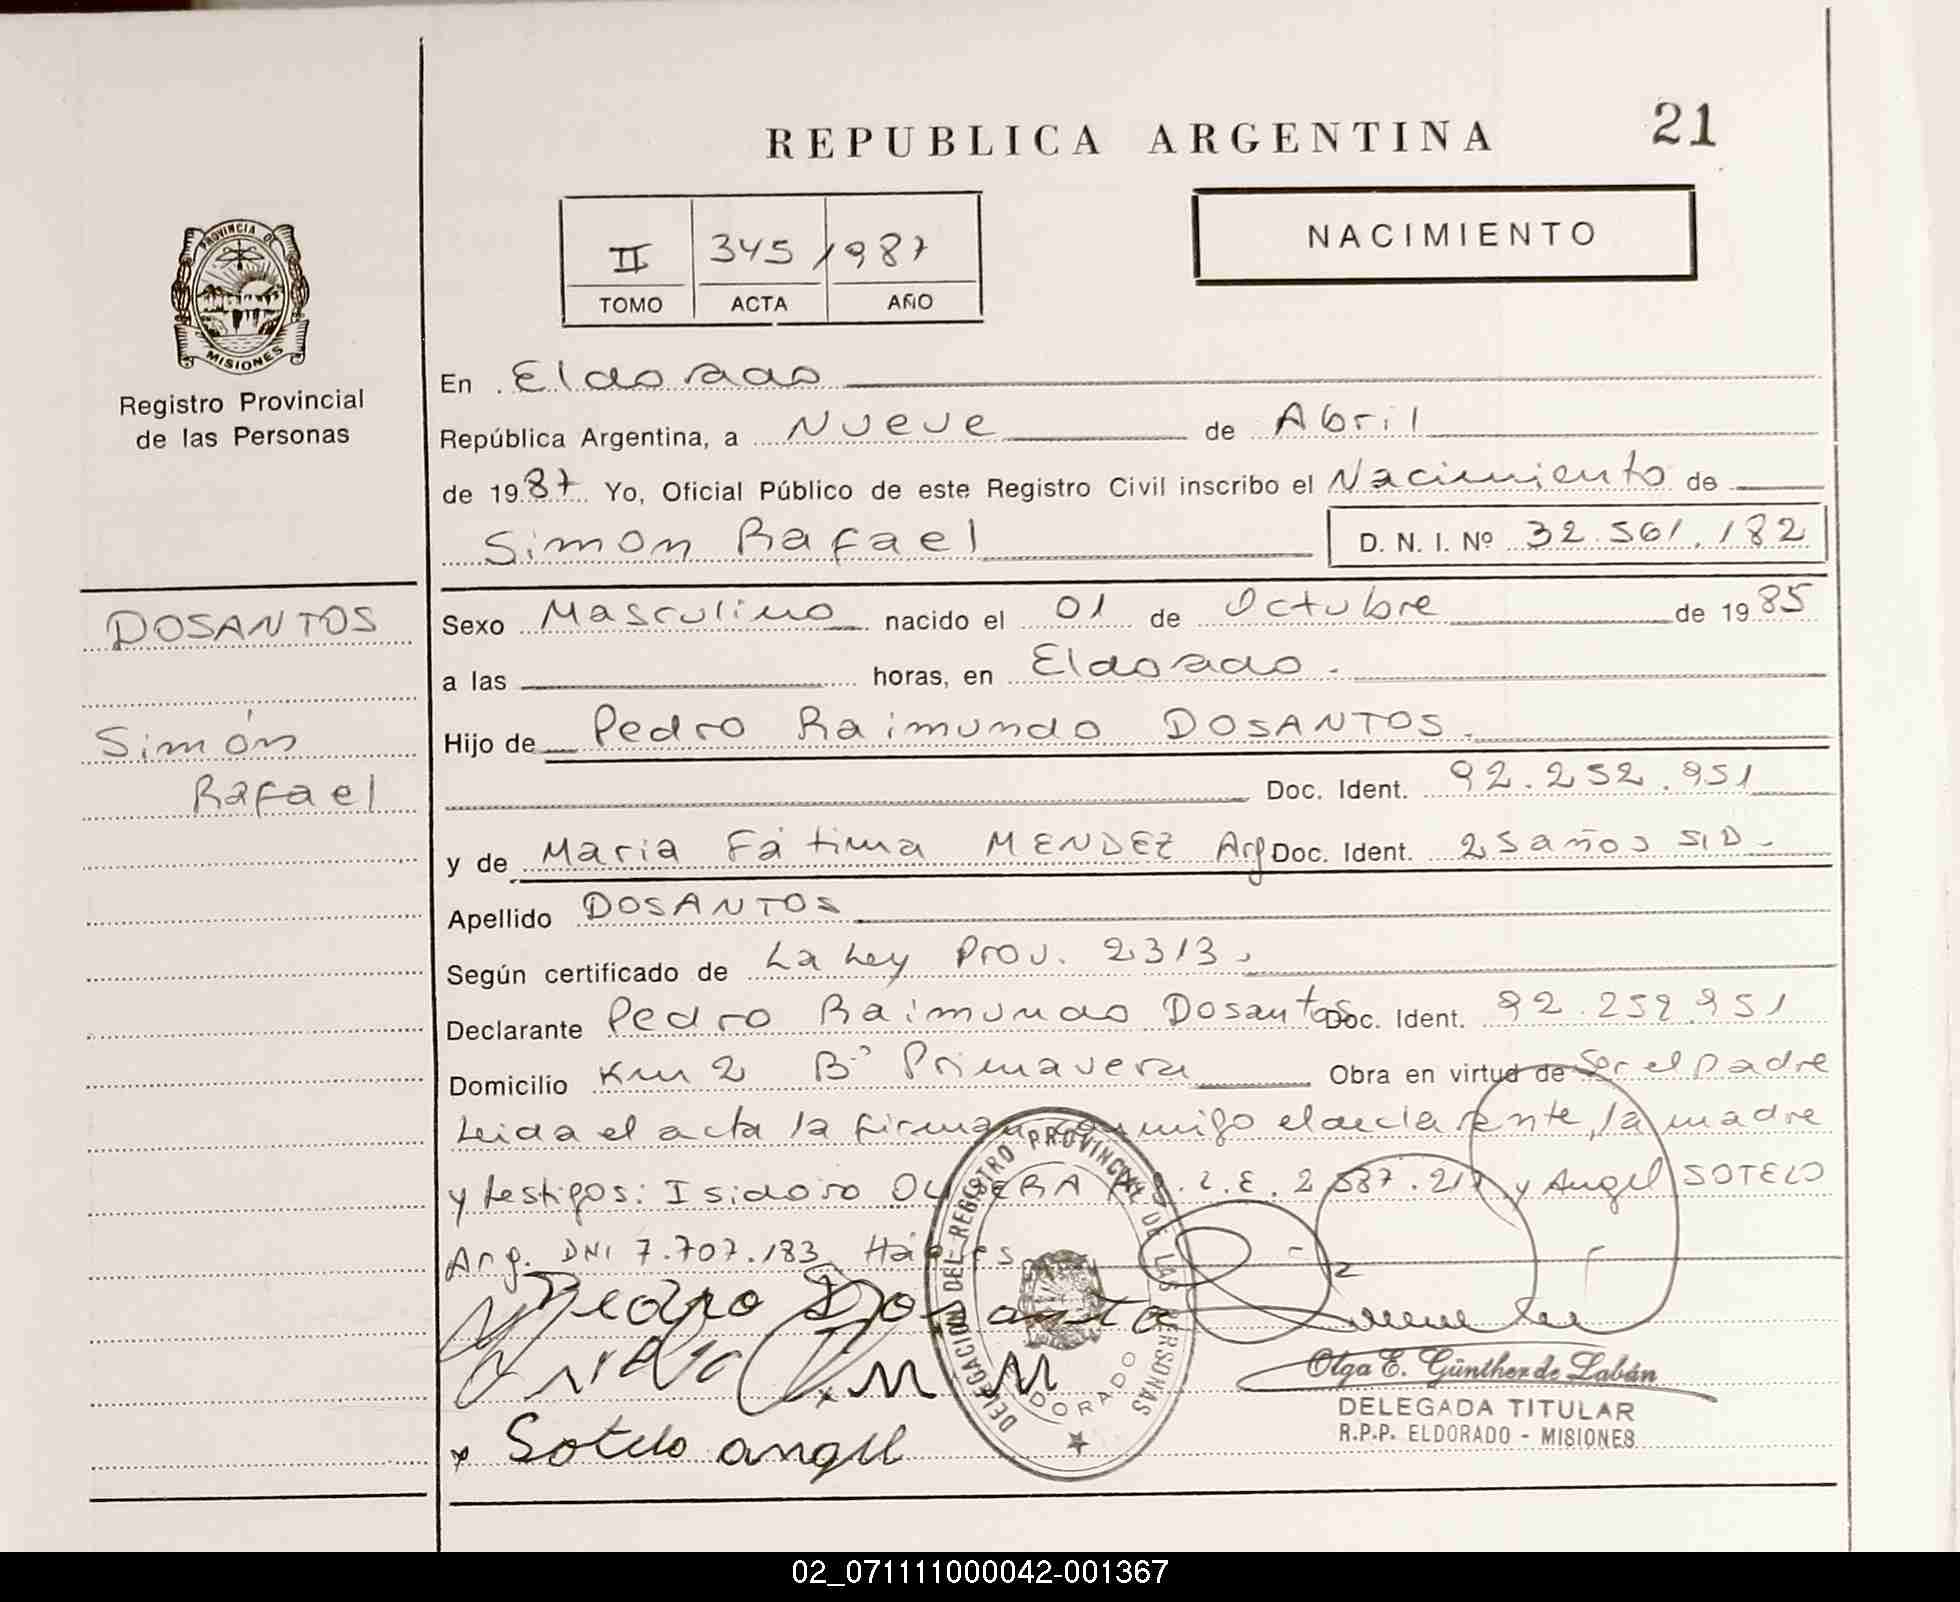 REPUBLICA ARGENTINA
21
II 345 1987
TOMO ACTA AÑO
NACIMIENTO
PROVINCIA DE
MISIONES
Registro Provincial
de las Personas
DOSANTOS
Simón
Rafael
En Eldorado
República Argentina, a Nueve de Abril
de 1987 Yo, Oficial Público de este Registro Civil inscribo el Nacimiento de
Simon Rafael D. N. I. Nº 32.561.182
Sexo Masculino nacido el 01 de Octubre de 1985
a las horas, en Eldorado.
Hijo de Pedro Raimundo DOSANTOS.
Doc. Ident. 92.252.951
y de Maria Fátima MENDEZ Arg Doc. Ident. 25 años S/D.
Apellido DOSANTOS
Según certificado de La Ley Prov. 2313.
Declarante Pedro Raimundo Dosantos Doc. Ident. 92.252.951
Domicilio Km 2 Bº Primavera Obra en virtud de Ser el padre
Leida el acta la firman conmigo el declarante, la madre
y testigos: Isidoro y Angel SOTELO
Arg. DNI 7.707.183 Hábiles
Pedro Dosanta
Sotelo angel
DELEGACION DEL REGISTRO PROVINCIAL DE LAS PERSONAS
ELDORADO
Olga E. Günther de Labán
DELEGADA TITULAR
R.P.P. ELDORADO - MISIONES
02_071111000042-001367